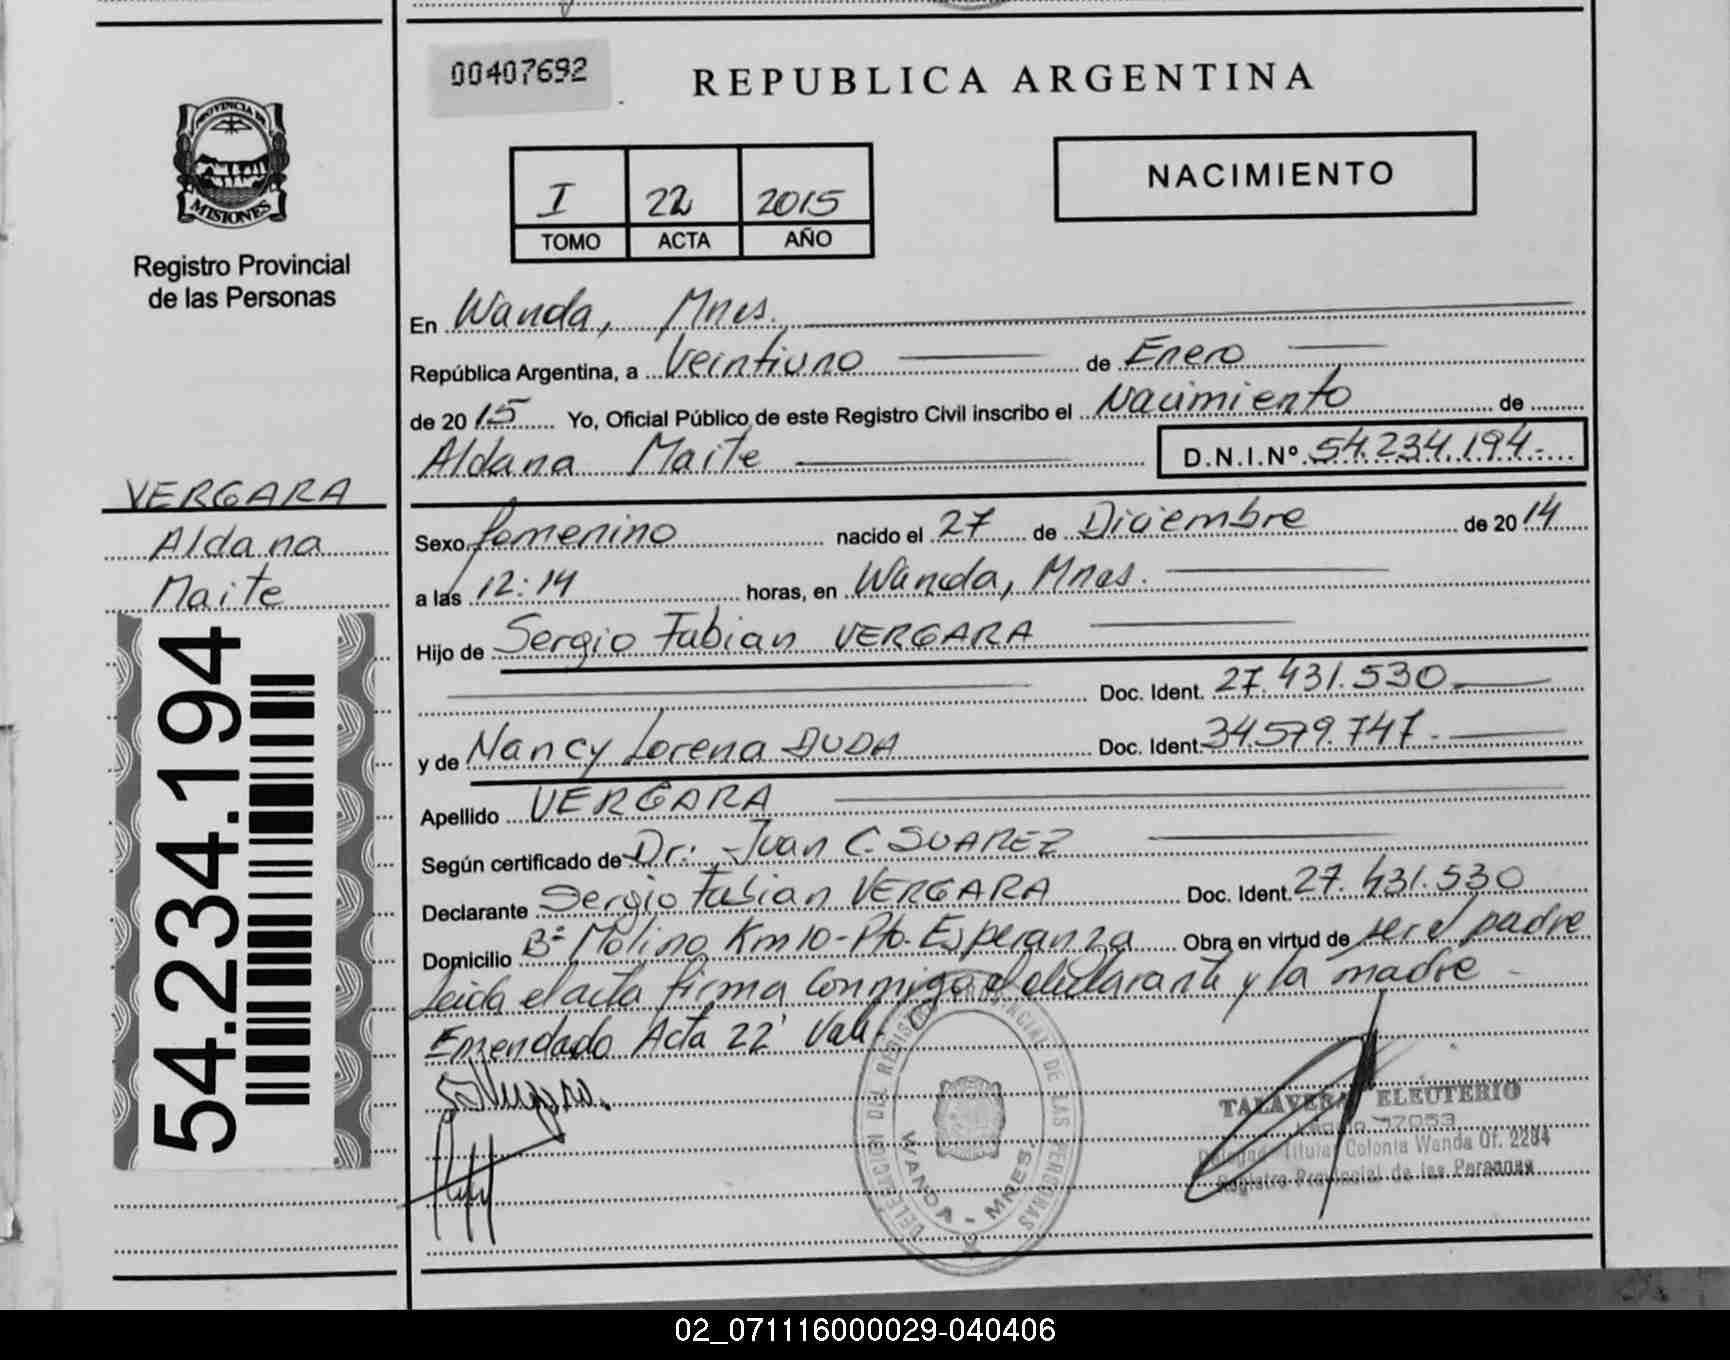 00407692
REPUBLICA ARGENTINA
PROVINCIA DE
MISIONES
Registro Provincial
de las Personas
I 22 2015
TOMO ACTA AÑO
NACIMIENTO
En Wanda, Mnes.
República Argentina, a Veintiuno de Enero
de 2015 Yo, Oficial Público de este Registro Civil inscribo el Nacimiento de
Aldana Maite D.N.I.Nº 54.234.194.-
VERGARA
Aldana
Maite
54.234.194
Sexo femenino nacido el 27 de Diciembre de 2014
a las 12:14 horas, en Wanda, Mnes.
Hijo de Sergio Fabian VERGARA
Doc. Ident. 27.431.530
y de Nancy Lorena DUDA Doc. Ident. 34.579.747.
Apellido VERGARA
Según certificado de Dr. Juan C. SUAREZ
Declarante Sergio Fabian VERGARA Doc. Ident. 27.431.530
Domicilio Bº Molino Km 10-Pto. Esperanza Obra en virtud de ser el padre
Leida el acta firma conmigo el declarante y la madre
Emendado Acta 22 Vale
DELEGACION DEL REGISTRO PROVINCIAL DE LAS PERSONAS
WANDA - MNES.
TALAVERA ELEUTERIO
Titular Colonia Wanda Of. 2284
Registro Provincial de las Personas
02_071116000029-040406